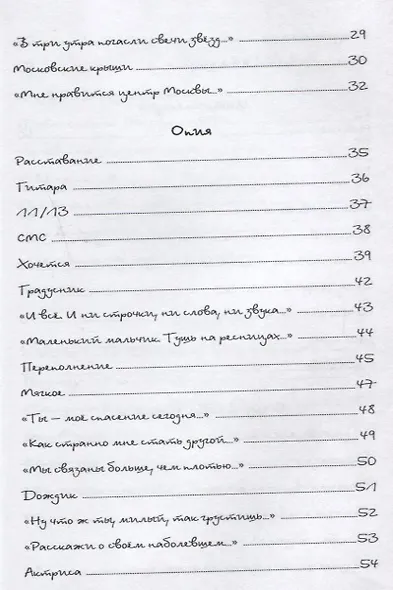 «В три утра погасли свечи звёзд...» 29
Московские крыши 30
«Мне нравится центр Москвы...» 32
Опия
Расставание 35
Гитара 36
11/13 37
СМС 38
Хочется 39
Градусник 42
«И всё. И ни строчки, ни слова, ни звука...» 43
«Маленький мальчик. Тушь на ресницах...» 44
Переполнение 45
Мягкое 47
«Ты — моё спасение сегодня...» 48
«Как странно мне стать другой...» 49
«Мы связаны больше, чем плотью...» 50
Дождик 51
«Ну что ж ты, милый, так грустишь...» 52
«Расскажи о своём наболевшем...» 53
Актриса 54